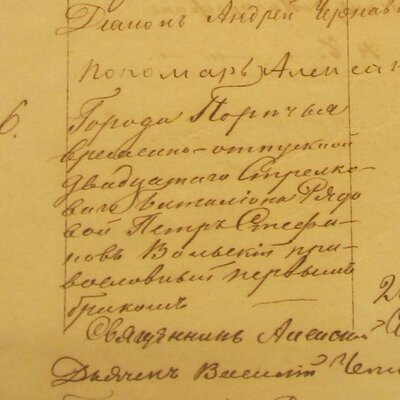 Діаконъ Андрей Чернав
Пономарь Алексѣй
6. Города Порѣчья
временно-отпускной
двадцатаго Стрелко-
ваго баталіона Рядо
вой Петръ Стефа-
новъ Вольскій пра-
вославный первымъ
бракомъ
Священникъ Алексѣй
Дьячекъ Василій